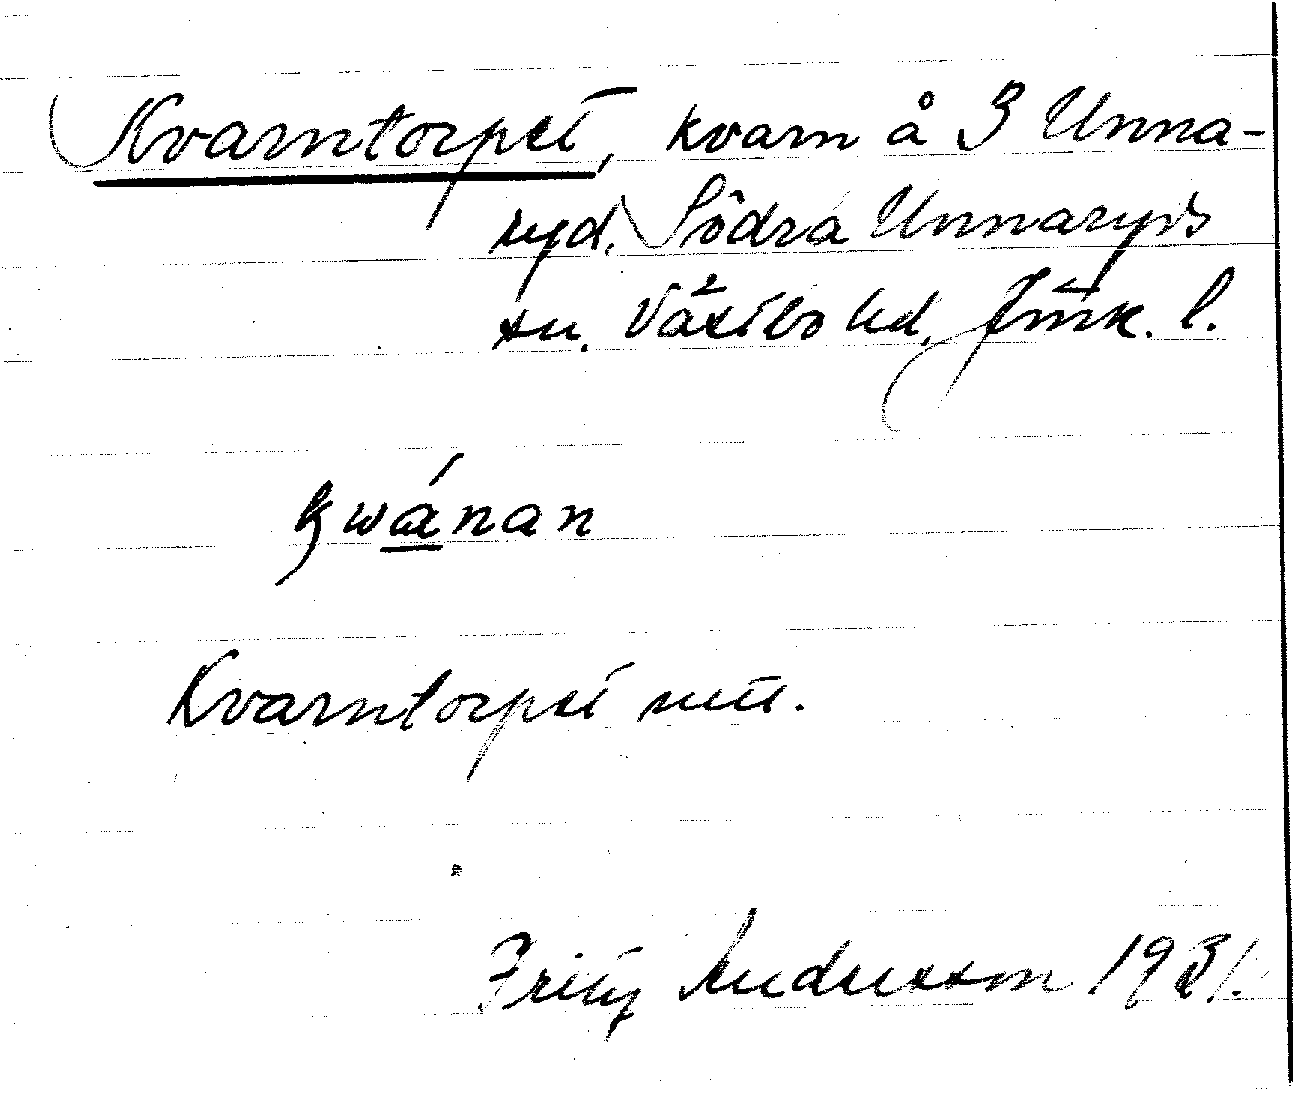 Kvarntorpet, kvarn å S Unna-
ryd. Södra Unnaryds
sn. Västbo hd, Jönk. l.
kwánan
Kvarntorpet
Fritz Andersson 1931.